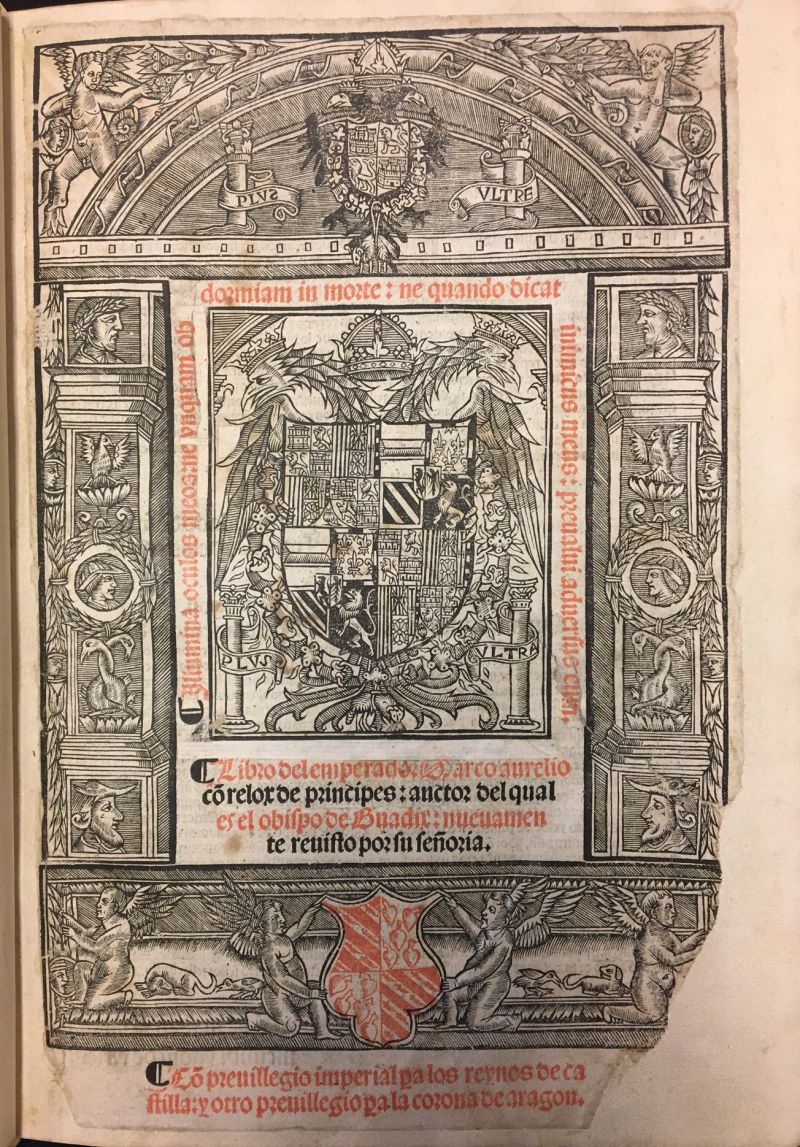 PLVS
VLTRE
Illumina oculos meos: ne vnquam ob
dormiam in morte: ne quando dicat
inimicus meus: preualui aduersus eum.
PLVS
VLTRA
Libro del emperador Marco aurelio
cõ relox de principes: auctor del qual
es el obispo de Guadix: nueuamen
te reuisto por su señoria.
Cõ preuillegio imperial pa los reynos de ca
stilla: y otro preuillegio pa la corona de aragon.